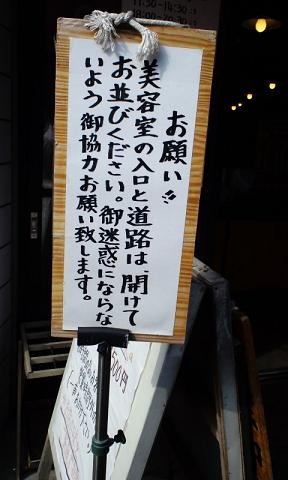 11:30~14:30
お願い!!
美容室の入口と道路は、開けて
お並びください。御迷惑にならな
いよう御協力お願い致します。
500円